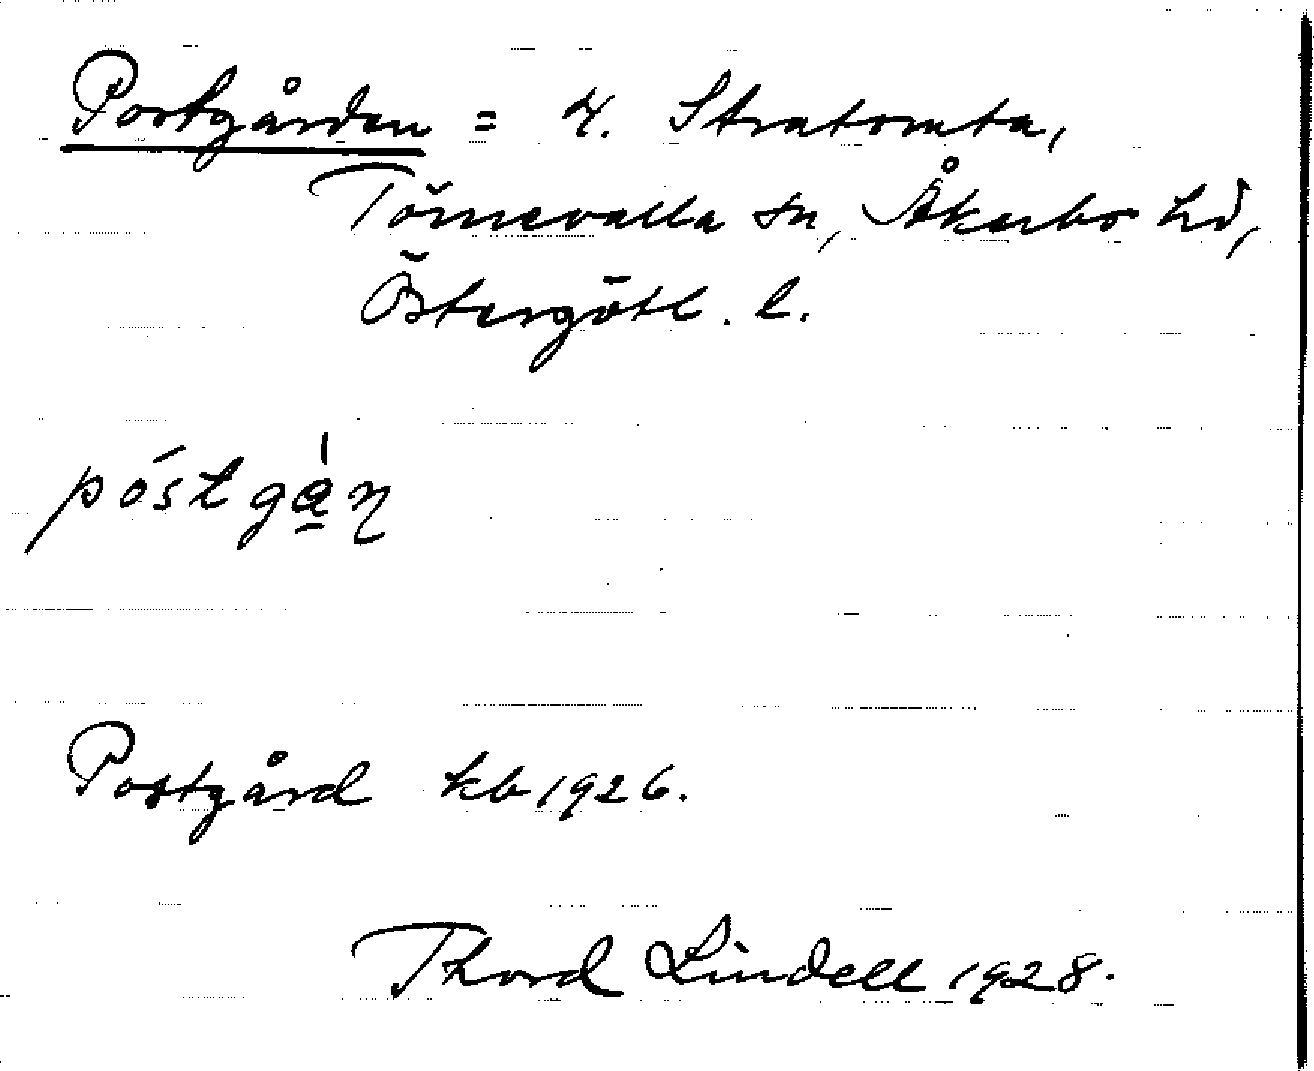 Postgården = N. Stratomta,
Törnevalla sn, Åkerbo hd,
Östergötl. l.
póstgàṇ
Postgård kb 1926.
Thord Lindell 1928.